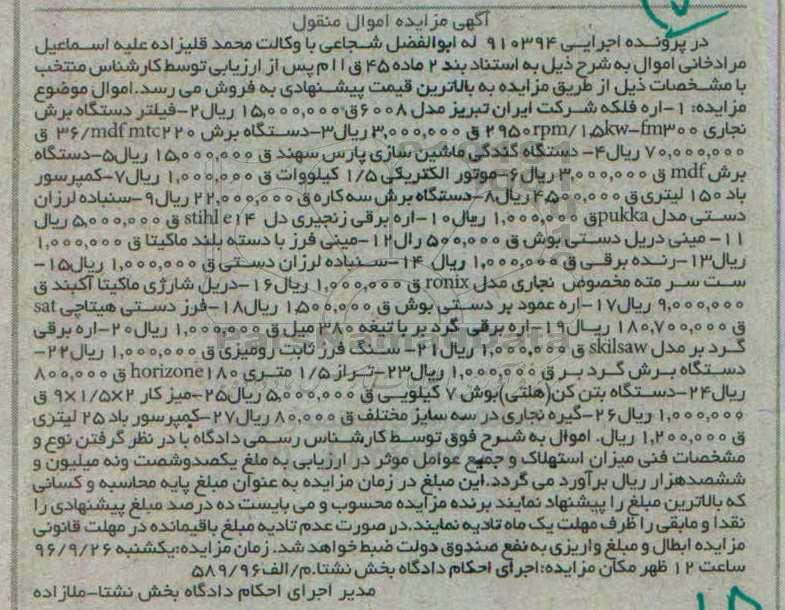 آگهی مزایده اموال منقول
در پرونده اجرایی ۹۱۰۳۹۴ له ابوالفضل شجاعی با وکالت محمد قلیزاده علیه اسماعیل
مرادخانی اموال به شرح ذیل به استناد بند ۲ ماده ۴۵ ق ا ا م پس از ارزیابی توسط کارشناس منتخب
با مشخصات ذیل از طریق مزایده به بالاترین قیمت پیشنهادی به فروش می رسد. اموال موضوع
مزایده: ۱-اره فلکه شرکت ایران تبریز مدل ۶۰۰۸ ق ۱۵,۰۰۰,۰۰۰ ریال۲-فیلتر دستگاه برش
نجاری ۲۹۵۰rpm/۱,۵kw-fm۳۰۰ ق ۳,۰۰۰,۰۰۰ ریال۳-دستگاه برش ۳۶/mdf mtc۲۲۰ ق
۷۰,۰۰۰,۰۰۰ ریال۴- دستگاه گندگی ماشین سازی پارس سهند ق ۱۵,۰۰۰,۰۰۰ ریال۵-دستگاه
برش mdf ق ۳,۰۰۰,۰۰۰ ریال۶-موتور الکتریکی ۱/۵ کیلووات ق ۱,۰۰۰,۰۰۰ ریال۷-کمپرسور
باد ۱۵۰ لیتری ق ۴,۵۰۰,۰۰۰ ریال۸-دستگاه برش سه کاره ق ۲۲,۰۰۰,۰۰۰ ریال۹-سنباده لرزان
دستی مدل pukka ق ۱,۰۰۰,۰۰۰ ریال۱۰-اره برقی زنجیری دل stihl e۱۴ ق ۵,۰۰۰,۰۰۰ ریال
۱۱- مینی دریل دستی بوش ق ۵۰۰,۰۰۰ رال۱۲-مینی فرز با دسته بلند ماکیتا ق ۱,۰۰۰,۰۰۰
ریال۱۳-رنده برقی ق ۱,۰۰۰,۰۰۰ ریال ۱۴-سنباده لرزان دستی ق ۱,۰۰۰,۰۰۰ ریال۱۵-
ست سر مته مخصوص نجاری مدل ronix ق ۱,۰۰۰,۰۰۰ ریال۱۶-دریل شارژی ماکیتا آکبند ق
۹,۰۰۰,۰۰۰ ریال۱۷-اره عمود بر دستی بوش ق ۱,۵۰۰,۰۰۰ ریال۱۸-فرز دستی هیتاچی sat
ق ۱۸۰,۷۰۰,۰۰۰ ریال۱۹-اره برقی گرد بر با تیغه ۳۸۰ میل ق ۱,۰۰۰,۰۰۰ ریال۲۰-اره برقی
گرد بر مدل skilsaw ق ۱,۰۰۰,۰۰۰ ریال۲۱- سنگ فرز ثابت رومیزی ق ۱,۰۰۰,۰۰۰ ریال۲۲-
دستگاه برش گرد بر ق ۱,۰۰۰,۰۰۰ ریال۲۳-تراز ۱/۵ متری horizone۱۸۰ ق ۸۰۰,۰۰۰
ریال۲۴-دستگاه بتن کن(هلتی)بوش ۷ کیلویی ق ۵,۰۰۰,۰۰۰ ریال۲۵-میز کار ۹×۱/۵×۲ ق
۱,۰۰۰,۰۰۰ ریال۲۶-گیره نجاری در سه سایز مختلف ق ۸۰,۰۰۰ ریال۲۷-کمپرسور باد ۲۵ لیتری
ق ۱,۲۰۰,۰۰۰ ریال. اموال به شرح فوق توسط کارشناس رسمی دادگاه با در نظر گرفتن نوع و
مشخصات فنی میزان استهلاک و جمیع عوامل موثر در ارزیابی به ملغ یکصدوشصت ونه میلیون و
ششصدهزار ریال برآورد می گردد.این مبلغ در زمان مزایده به عنوان مبلغ پایه محاسبه و کسانی
که بالاترین مبلغ را پیشنهاد نمایند برنده مزایده محسوب و می بایست ده درصد مبلغ پیشنهادی را
نقدا و مابقی را ظرف مهلت یک ماه تادیه نمایند.در صورت عدم تادیه مبلغ باقیمانده در مهلت قانونی
مزایده ابطال و مبلغ واریزی به نفع صندوق دولت ضبط خواهد شد. زمان مزایده:یکشنبه ۹۶/۹/۲۶
ساعت ۱۲ ظهر مکان مزایده:اجرای احکام دادگاه بخش نشتا.م/الف۵۸۹/۹۶
مدیر اجرای احکام دادگاه بخش نشتا-ملازاده